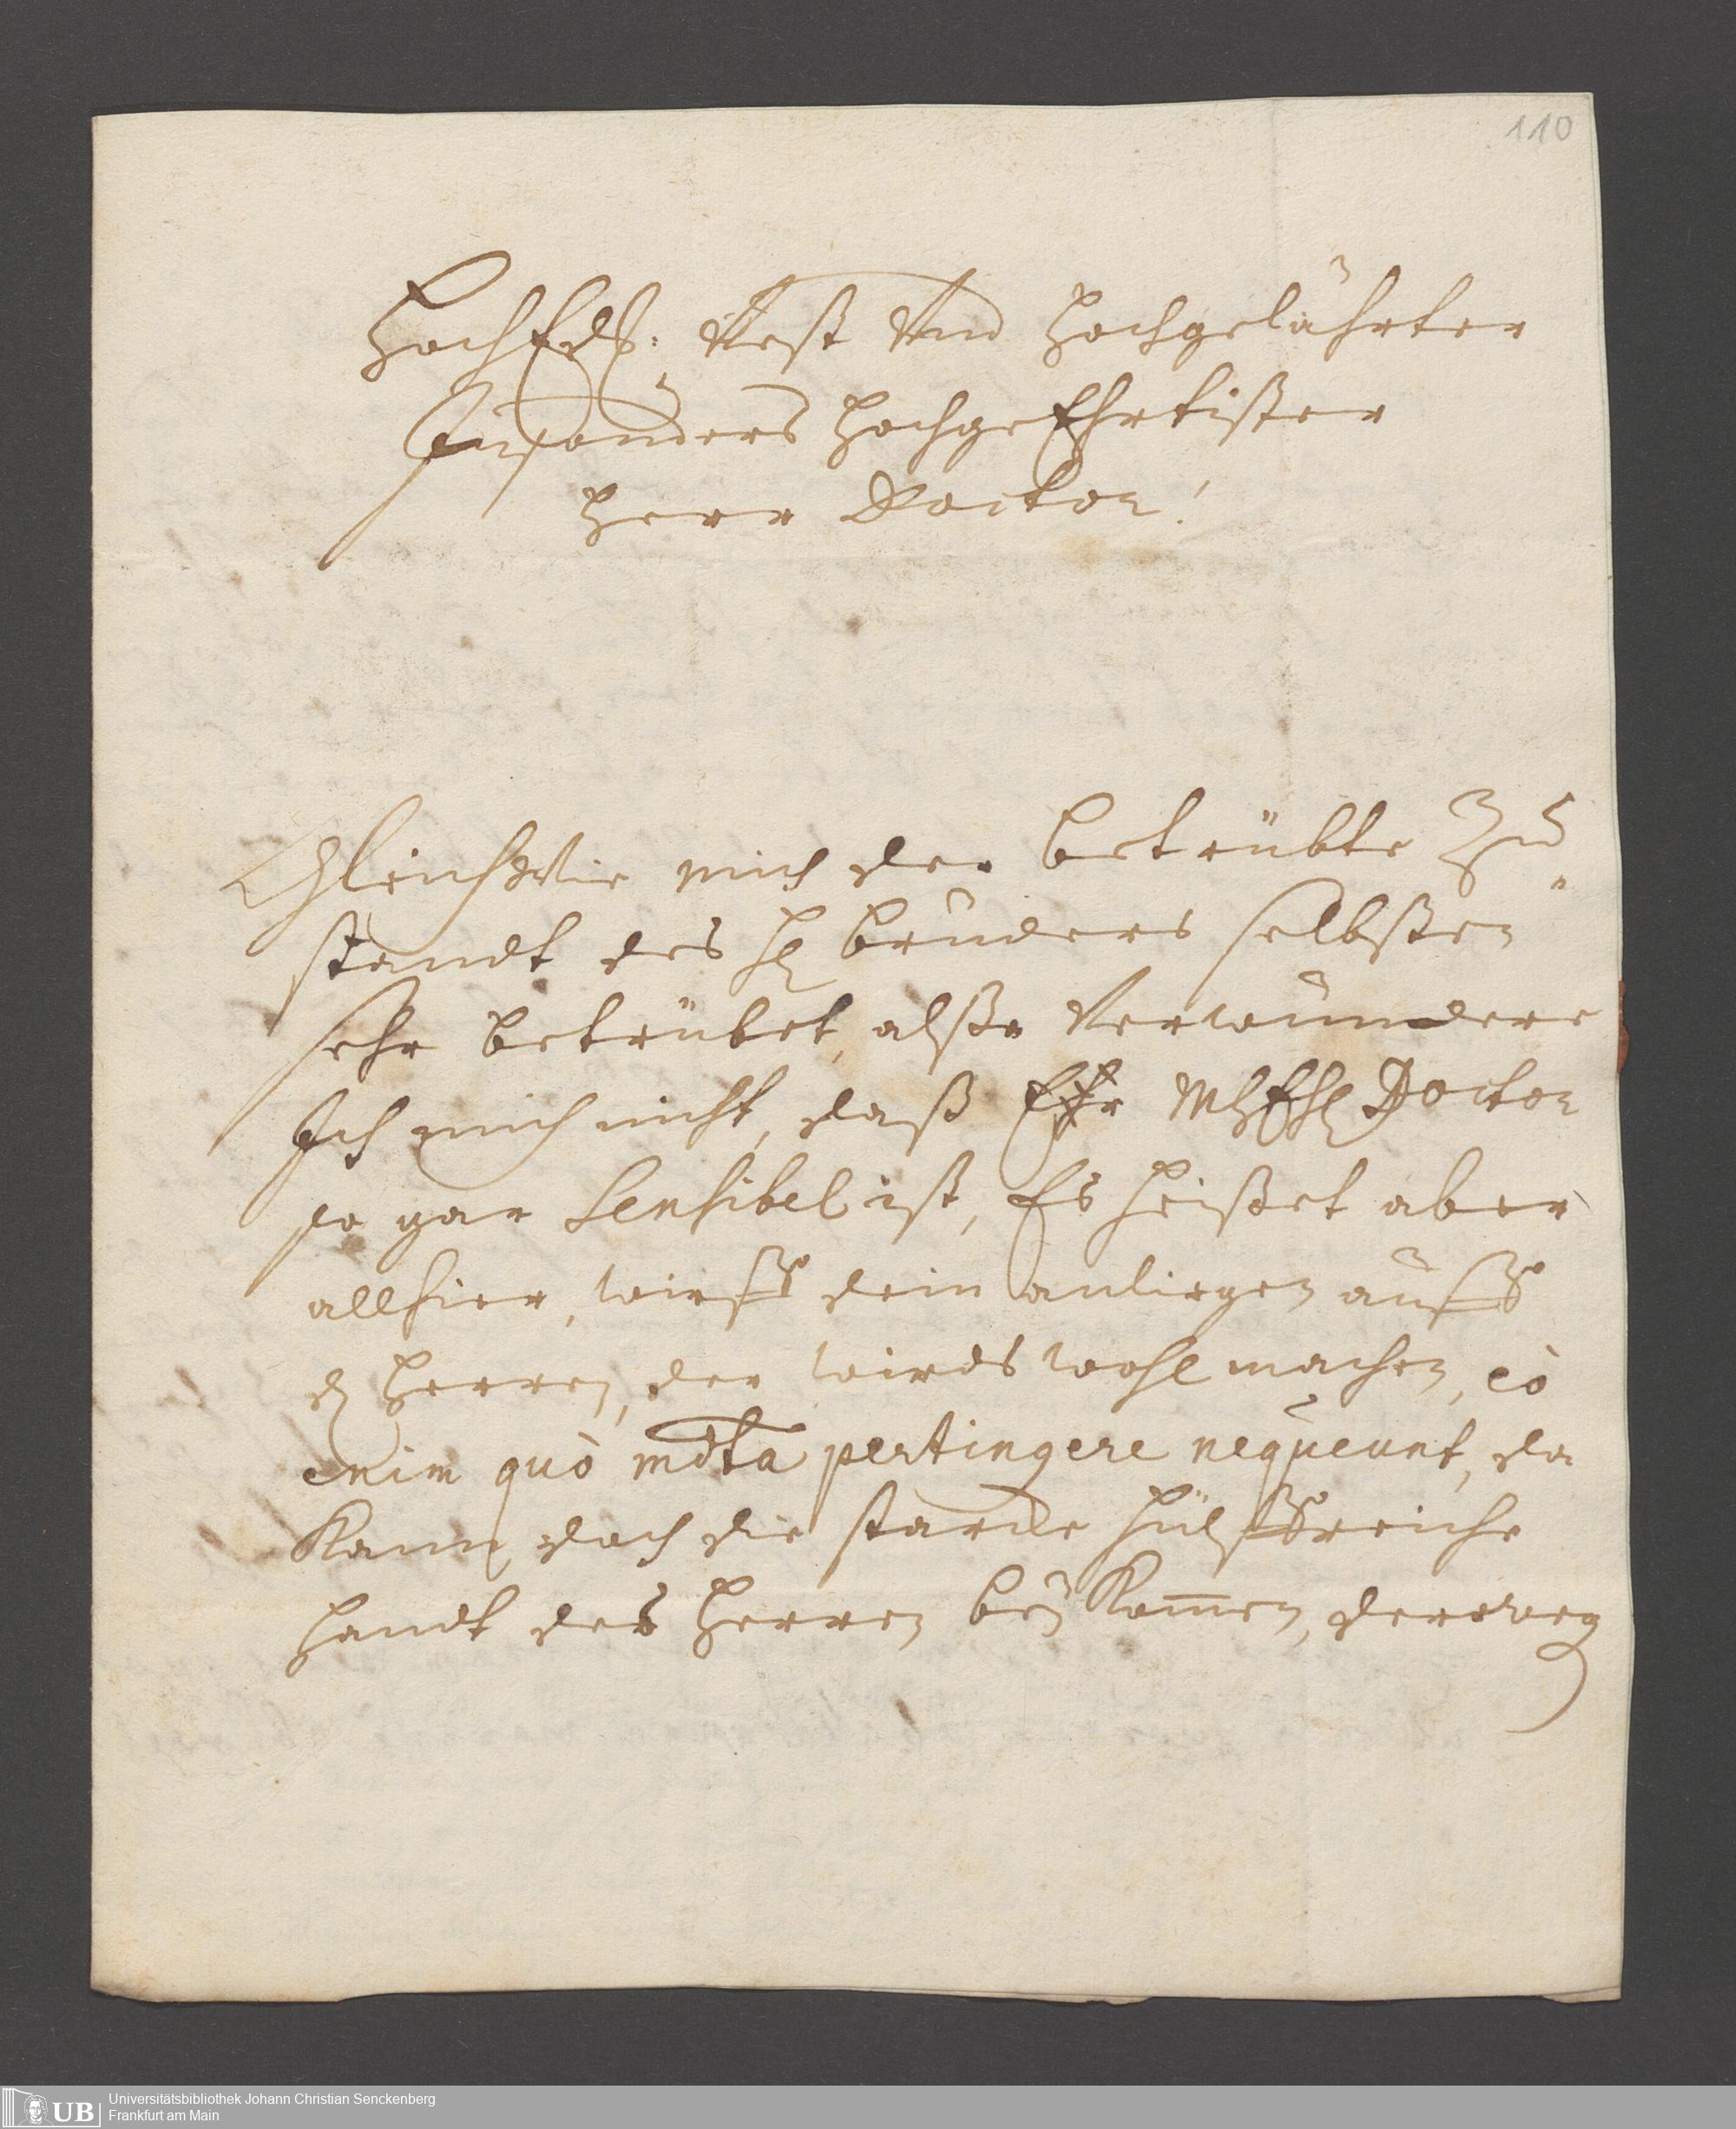 110
HochEdl: Vest Und Hochgelährter
Insonders HochgeEhrtister
Herr Doctor!
Gleich Wie mich der betrübte Zu-
standt des H. bruders selbsten
sehr betrübet, alßo Verwundere
Ich mich nicht, daß MhEhl Doctor
so gar Sensibel ist, Es heißet aber
allhier, wirff dein anliegen auff
dn Herren, der wirds wohl machen, eò
enim quò mdta pertingere nequeunt, da
Kann doch die starcke hülffreiche
Handt des Herren beÿ Kom̄en, derweg
UB
Universitätsbibliothek Johann Christian Senckenberg
Frankfurt am Main